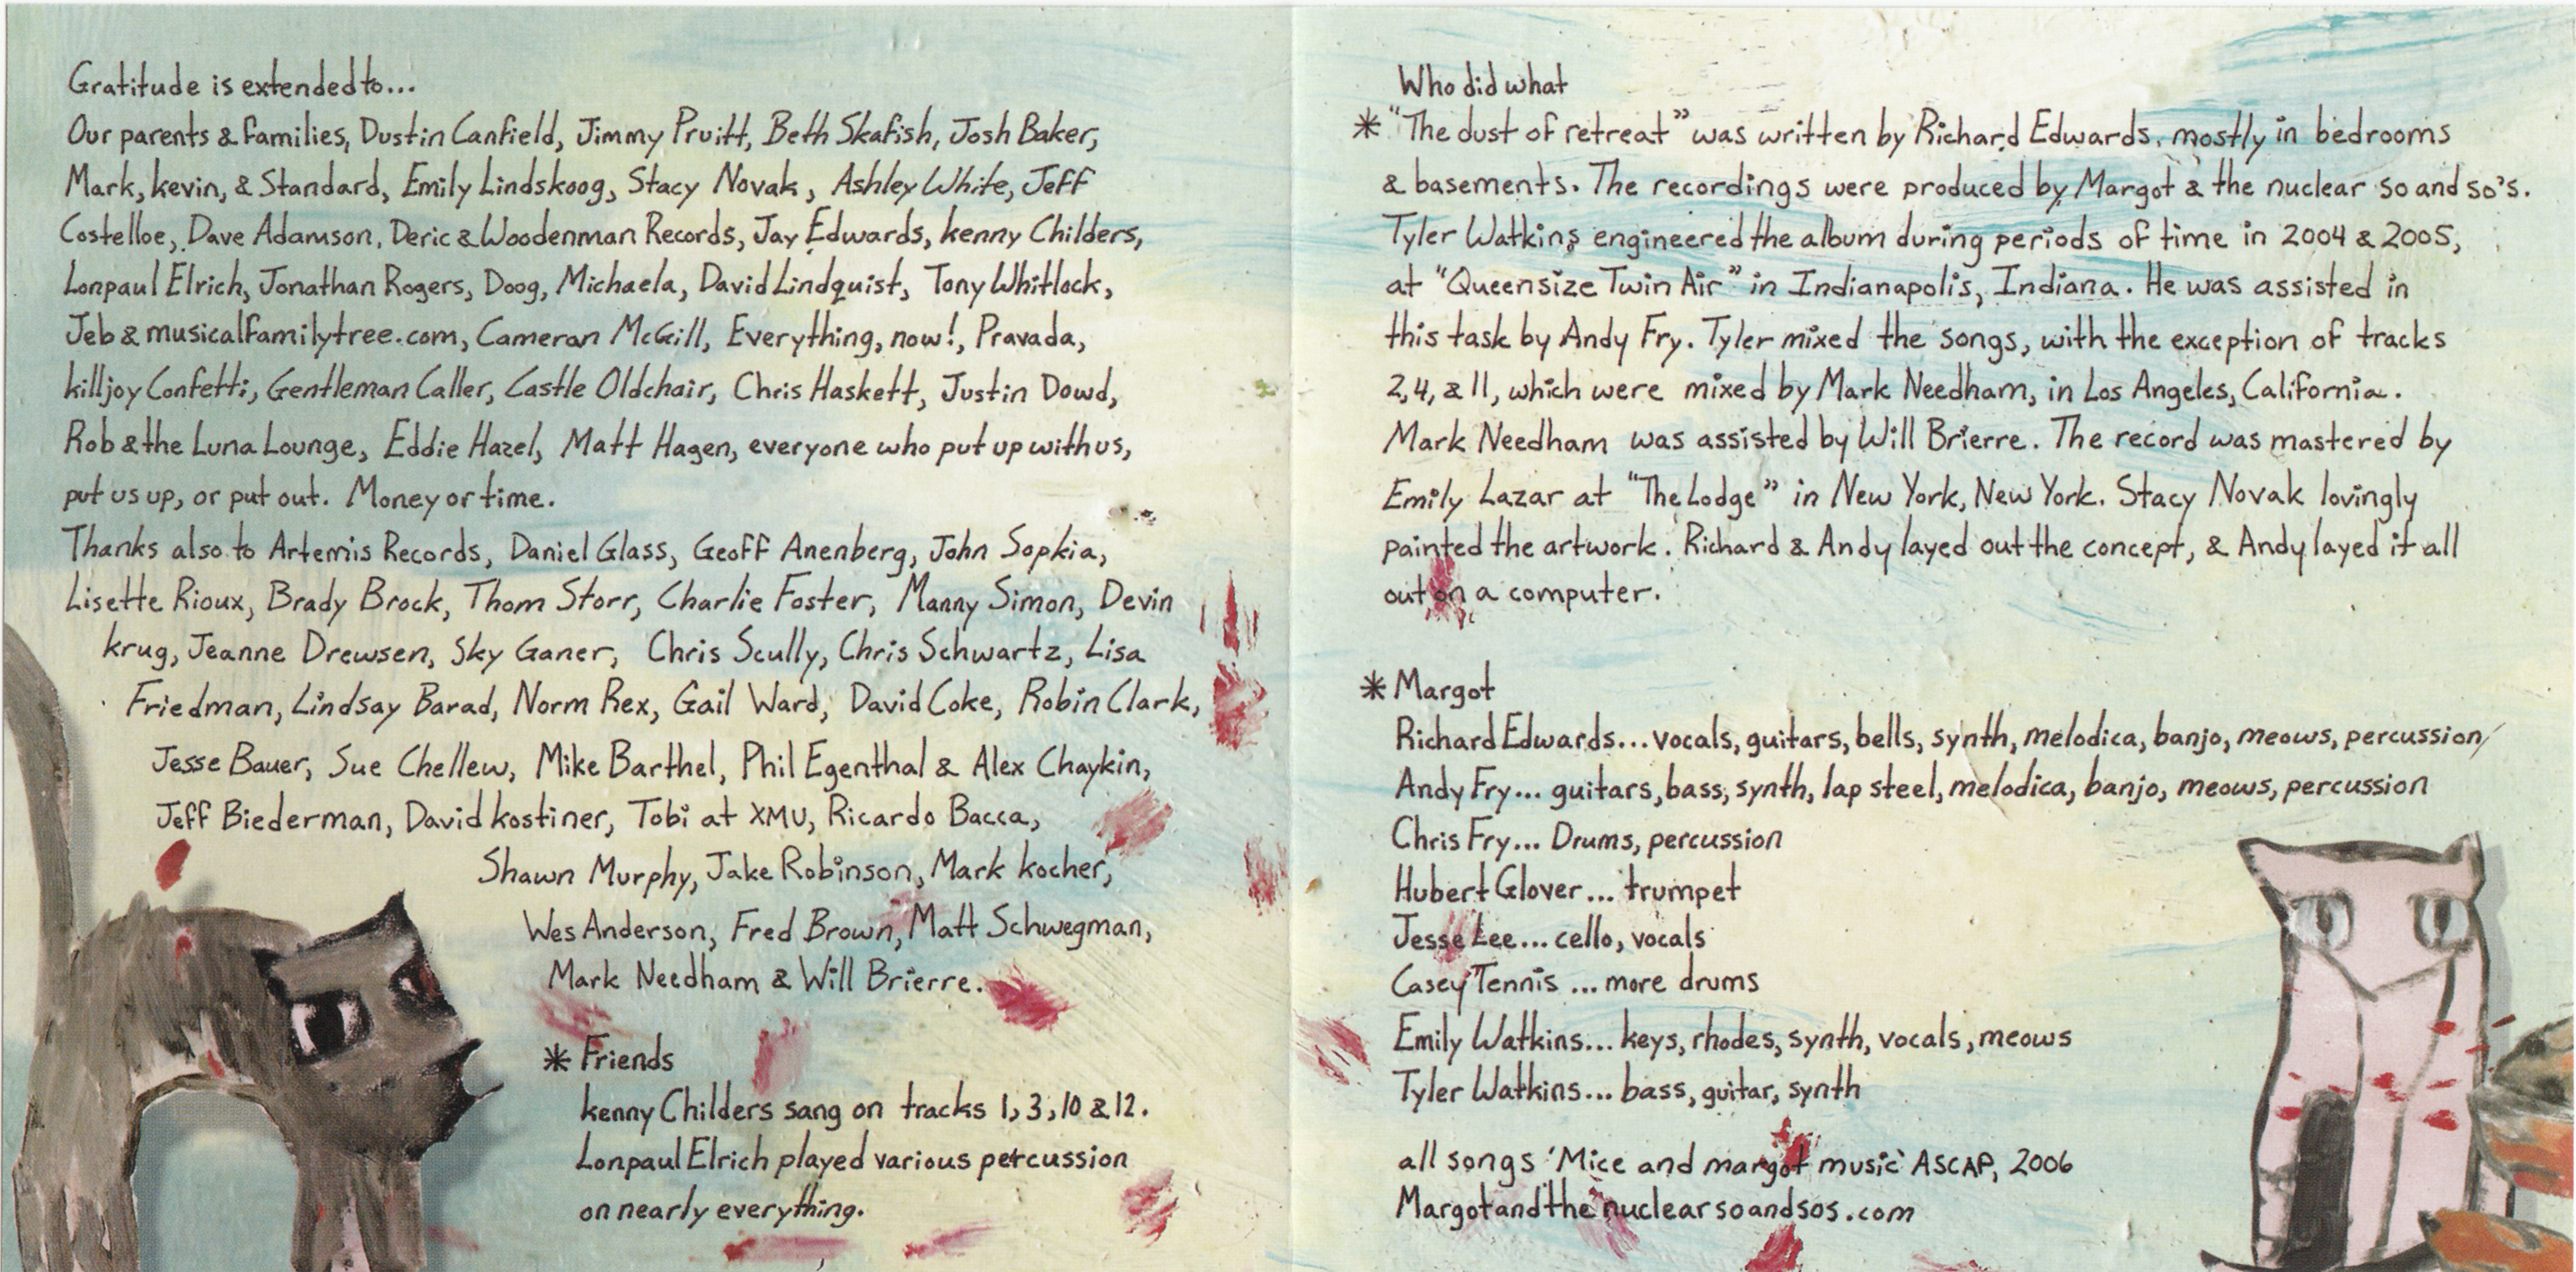 Gratitude is extended to...
Our parents & families, Dustin Canfield, Jimmy Pruitt, Beth Skafish, Josh Baker,
Mark, kevin, & Standard, Emily Lindskoog, Stacy Novak, Ashley White, Jeff
Costelloe, Dave Adamson, Deric & Woodenman Records, Jay Edwards, kenny Childers,
Lonpaul Elrich, Jonathan Rogers, Doog, Michaela, David Lindquist, Tony Whitlock,
Jeb & musicalfamilytree.com, Cameron McGill, Everything, now!, Pravada,
killjoy Confetti, Gentleman Caller, Castle Oldchair, Chris Haskett, Justin Dowd,
Rob & the Luna Lounge, Eddie Hazel, Matt Hagen, everyone who put up with us,
put us up, or put out. Money or time.
Thanks also to Artemis Records, Daniel Glass, Geoff Anenberg, John Sopkia,
Lisette Rioux, Brady Brock, Thom Storr, Charlie Foster, Manny Simon, Devin
krug, Jeanne Drewsen, Sky Ganer, Chris Scully, Chris Schwartz, Lisa
Friedman, Lindsay Barad, Norm Rex, Gail Ward, David Coke, Robin Clark,
Jesse Bauer, Sue Chellew, Mike Barthel, Phil Egenthal & Alex Chaykin,
Jeff Biederman, David kostiner, Tobi at XMU, Ricardo Bacca,
Shawn Murphy, Jake Robinson, Mark kocher,
Wes Anderson, Fred Brown, Matt Schwegman,
Mark Needham & Will Brierre.
* Friends
kenny Childers sang on tracks 1, 3, 10 & 12.
Lonpaul Elrich played various percussion
on nearly everything.
Who did what
* "The dust of retreat" was written by Richard Edwards, mostly in bedrooms
& basements. The recordings were produced by Margot & the nuclear so and so's.
Tyler Watkins engineered the album during periods of time in 2004 & 2005,
at "Queensize Twin Air" in Indianapolis, Indiana. He was assisted in
this task by Andy Fry. Tyler mixed the songs, with the exception of tracks
2, 4, & 11, which were mixed by Mark Needham, in Los Angeles, California.
Mark Needham was assisted by Will Brierre. The record was mastered by
Emily Lazar at "The Lodge" in New York, New York. Stacy Novak lovingly
painted the artwork. Richard & Andy layed out the concept, & Andy layed it all
out on a computer.
* Margot
Richard Edwards... vocals, guitars, bells, synth, melodica, banjo, meows, percussion
Andy Fry... guitars, bass, synth, lap steel, melodica, banjo, meows, percussion
Chris Fry... Drums, percussion
Hubert Glover... trumpet
Jesse Lee... cello, vocals
Casey Tennis ... more drums
Emily Watkins... keys, rhodes, synth, vocals, meows
Tyler Watkins... bass, guitar, synth
all songs 'Mice and margot music' ASCAP, 2006
Margotandthenuclearsoandsos.com